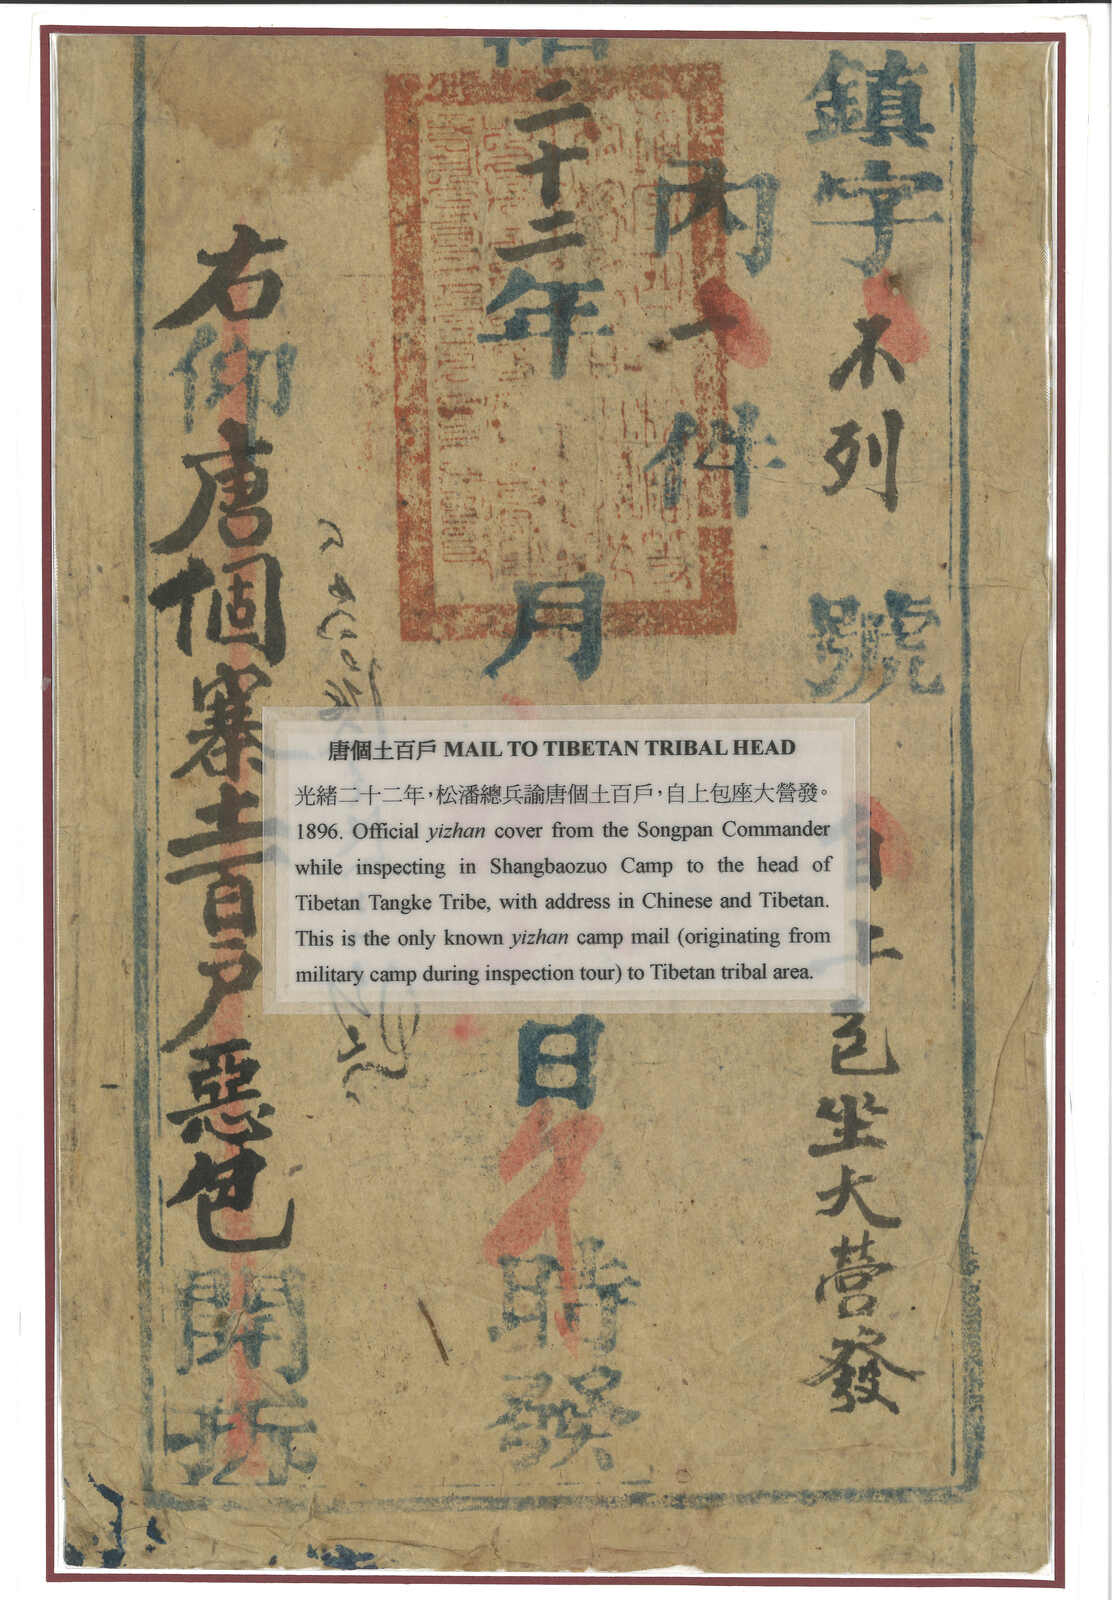 鎮字不列號
自上包坐大營發
內一件
緒二十二年 月 日 時發
右仰唐個寨土百戶惡包開拆
唐個土百戶 MAIL TO TIBETAN TRIBAL HEAD
光緒二十二年，松潘總兵諭唐個土百戶，自上包座大營發。
1896. Official yizhan cover from the Songpan Commander
while inspecting in Shangbaozuo Camp to the head of
Tibetan Tangke Tribe, with address in Chinese and Tibetan.
This is the only known yizhan camp mail (originating from
military camp during inspection tour) to Tibetan tribal area.